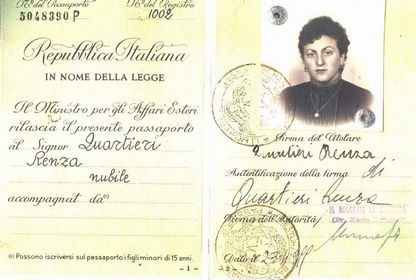 No. del Passaporto
No. del Registro
5048390 P
1002
Repubblica Italiana
IN NOME DELLA LEGGE
Il Ministro per gli Affari Esteri
rilascia il presente passaporto
al Signor Quartieri
Renza
nubile
accompagnat da
Possono iscriversi sul passaporto i figli minori di 15 anni.
- 1 -
Firma del Titolare
Quartieri Renza
Autentificazione della firma di
Quartieri Renza
Firma dell'Autorità
Dato il 23
- 2 -